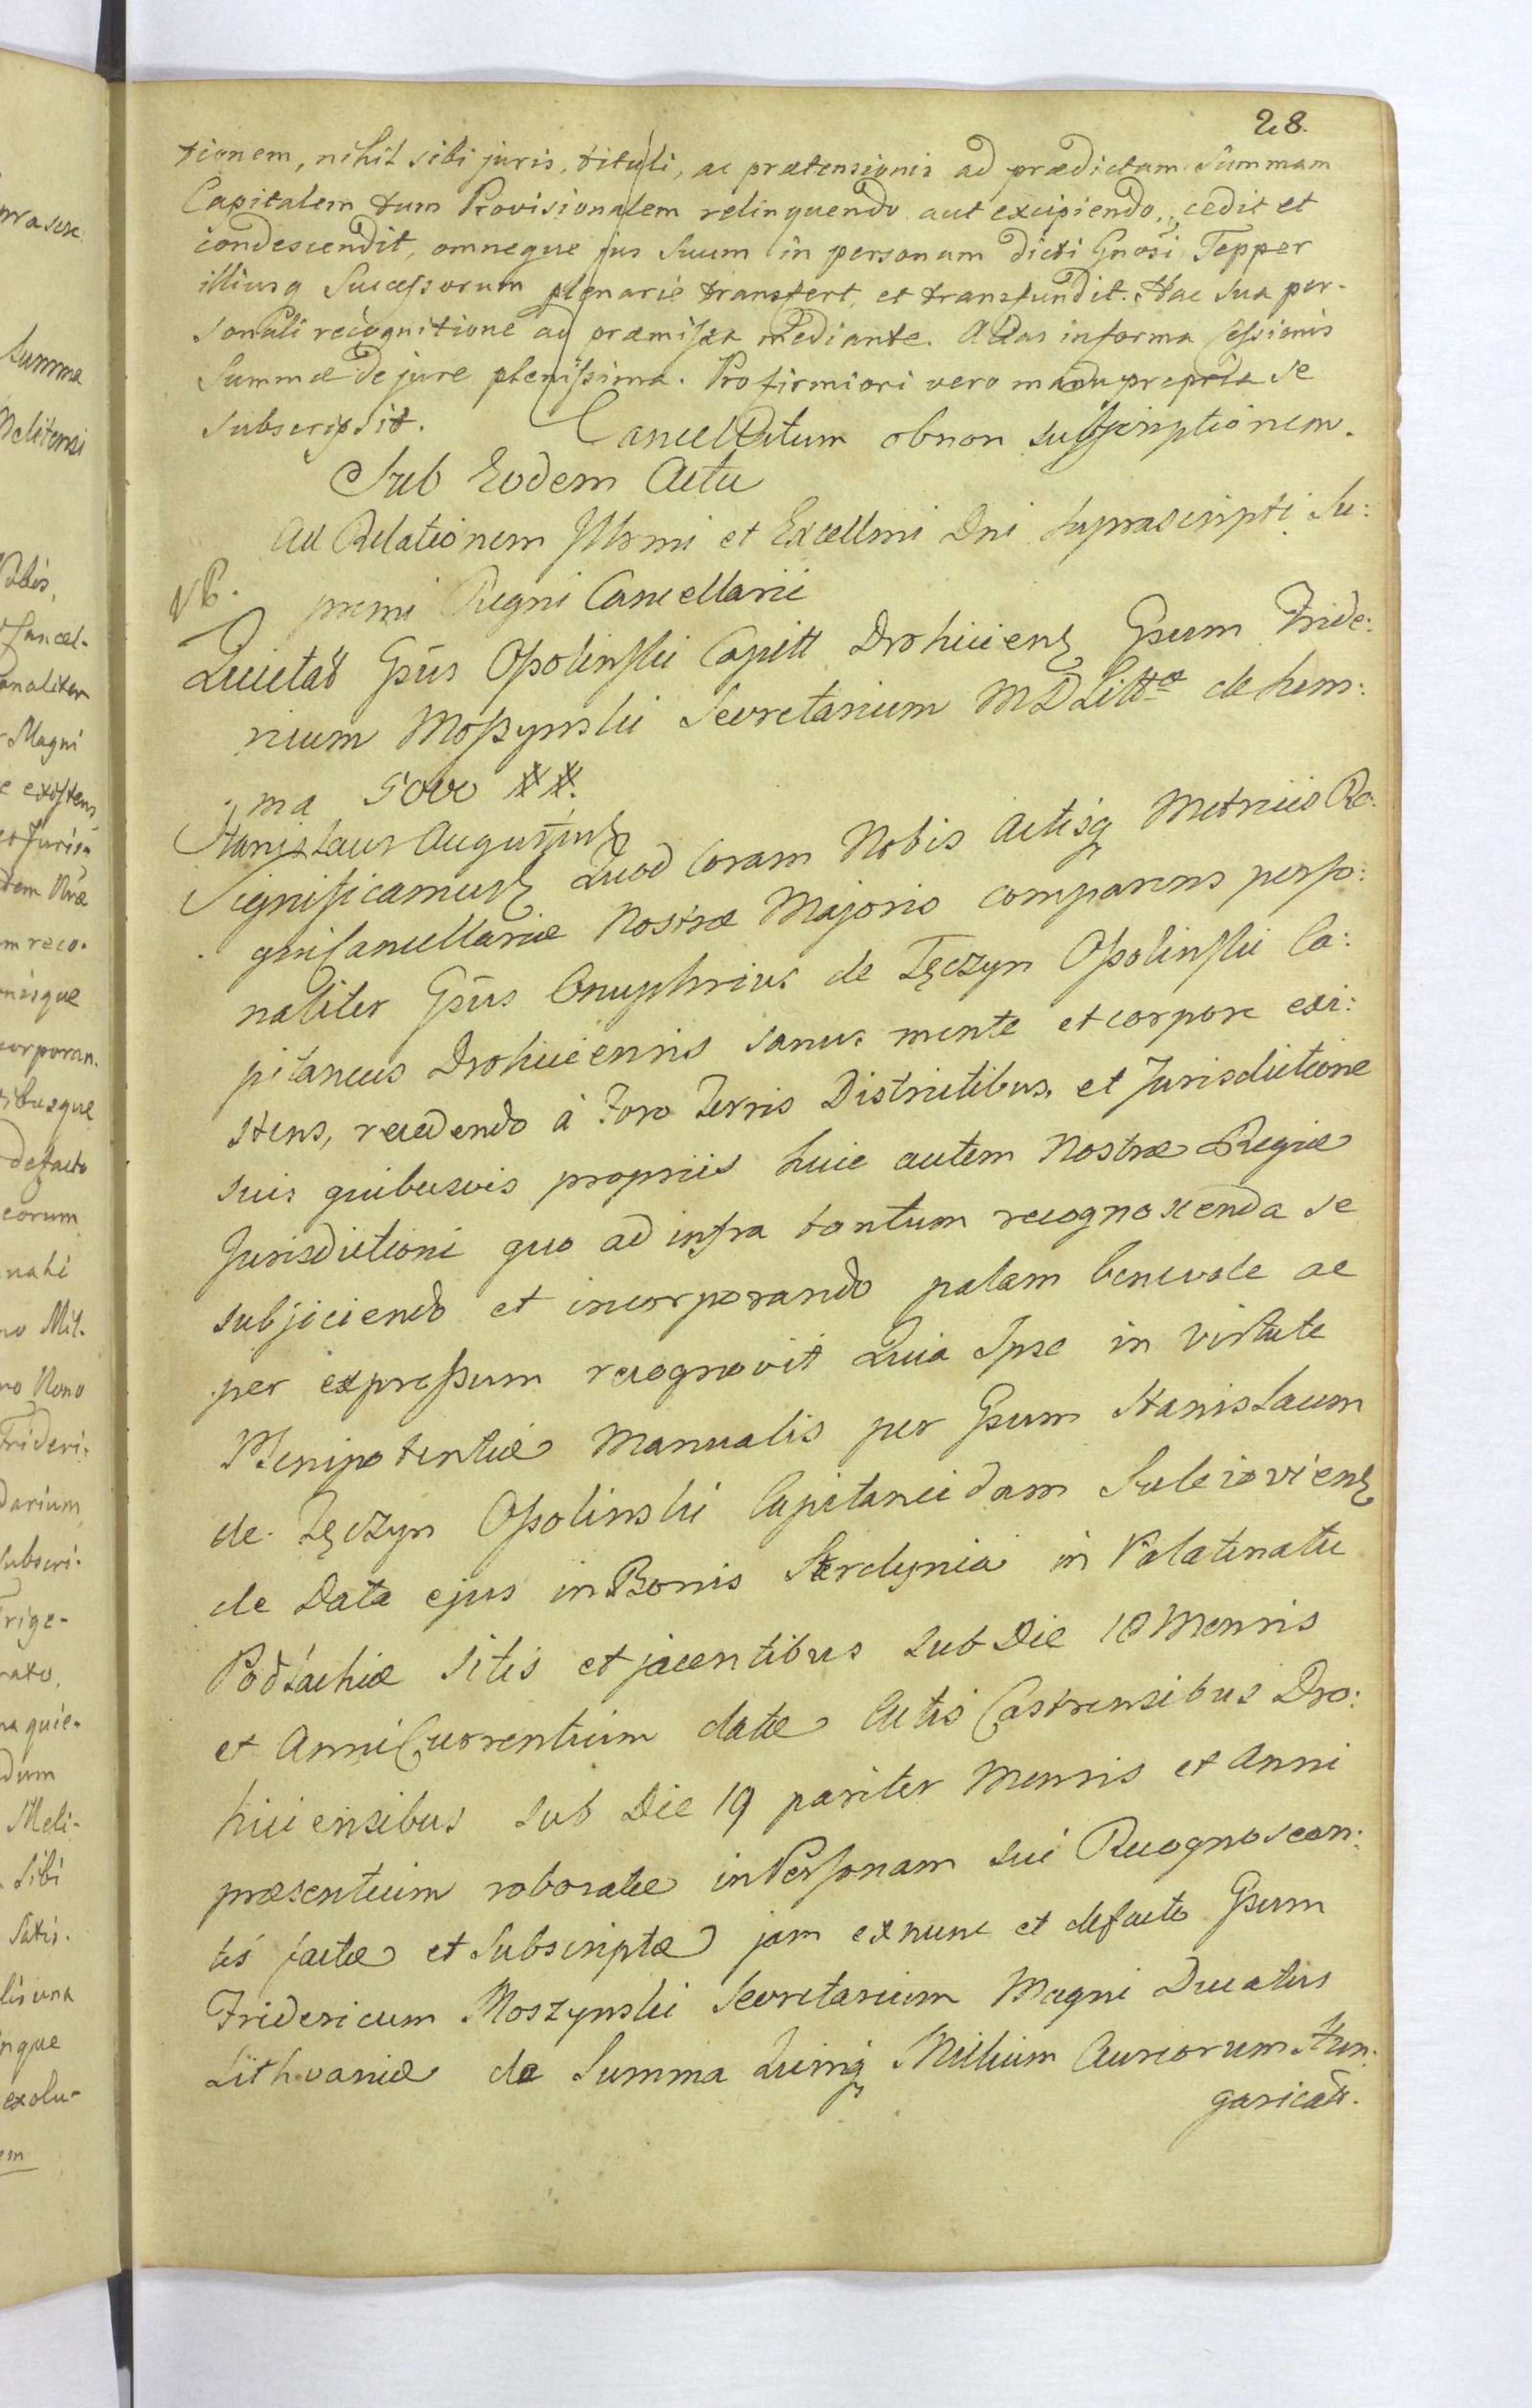 28.
tionem, nihil sibi juris, tituli, ac prætensionis ad prædictam Summam
Capitalem tum Provisionalem relinquendo aut excipiendo, cedit et
condescendit, omneque jus Suum in personam dicti Gnosi Tepper
illiusq Successorum plenarie transfert, et transfundit. Hac sua per-
sonali recognitione ad præmissa mediante. in forma Cessionis
Summæ de jure plenissima. Pro firmiori vero manu propria se
subscripsit. Cancellatum ob non subscriptionem.
Sub Eodem Actu
Ad Relationem Illrmi et Excellmi Dni supra scripti Su:
premi Regni Cancellarii
Quietat Gsus Ossolinski Capitt Drohiciens Gsum Fride:
ricum Moszynski Secretarium MDLitt de sum:
ma 5000 ##.
Stanislaus Augustus
Significamus Quod Coram Nobis Actisq Metrices Re:
gni Cancellariæ Nostræ Majoris comparens perso:
naliter Gsus Onuphrius de Tęczyn Ossolinski Ca:
pitaneus Drohiciensis sanus mente et corpore exi:
stens, recedendo à Foro Terris Districtibus, et Jurisdictione
suis quibusvis propriis huic autem Nostræ Regiæ
Jurisdictioni quo ad infra tantum recognoscenda se
subjiciendo et incorporando palam benevole ac
per expressum recognovit Quia Ipse in virtute
Plenipotentiæ Manualis per Gsum Stanislaum
de Tęczyn Ossolinski Capitaneidam Suleioviens
de Data ejus in Bonis Sterdynia in Palatinatu
Podlachiæ sitis et jacentibus sub Die 18 Mensis
et Anni Currentium datæ Actis Castrensibus Dro:
hiciensibus sub Die 19 pariter Mensis et Anni
præsentium roboratæ in Personam sui Recognoscen:
tis factæ et Subscriptæ jam ex nunc et de facto Gsum
Fridericum Moszynski Secretarium Magni Ducatus
Lithvaniæ de Summa Quinq Millium Aureorum Hun:
garical.